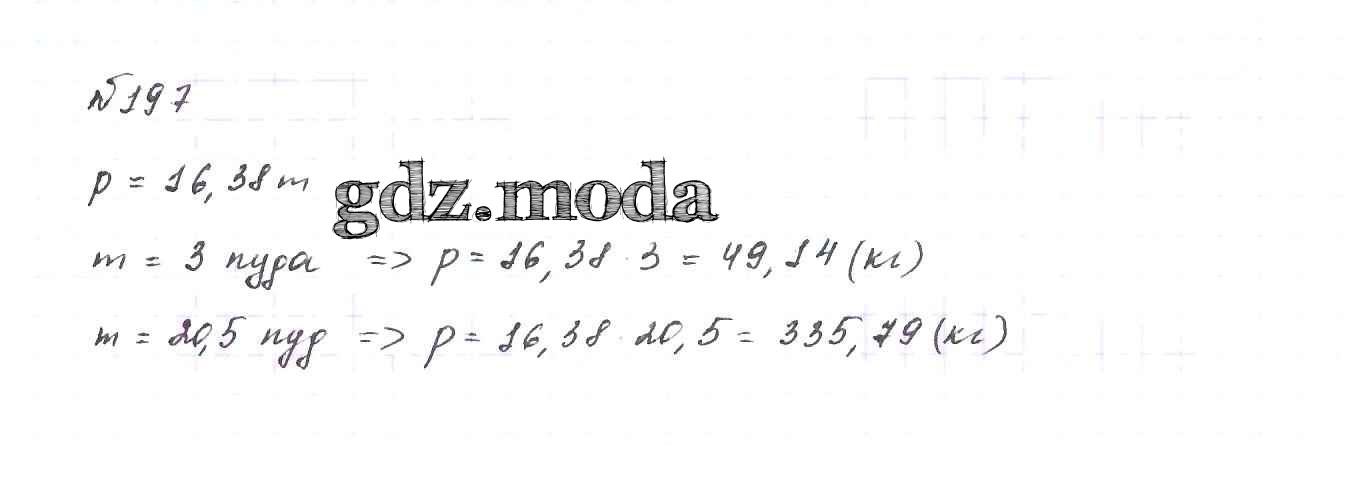 №197
p = 16,38m
gdz.moda
m = 3 пуда => p = 16,38 · 3 = 49,14 (кг)
m = 20,5 пуд => p = 16,38 · 20,5 = 335,79 (кг)